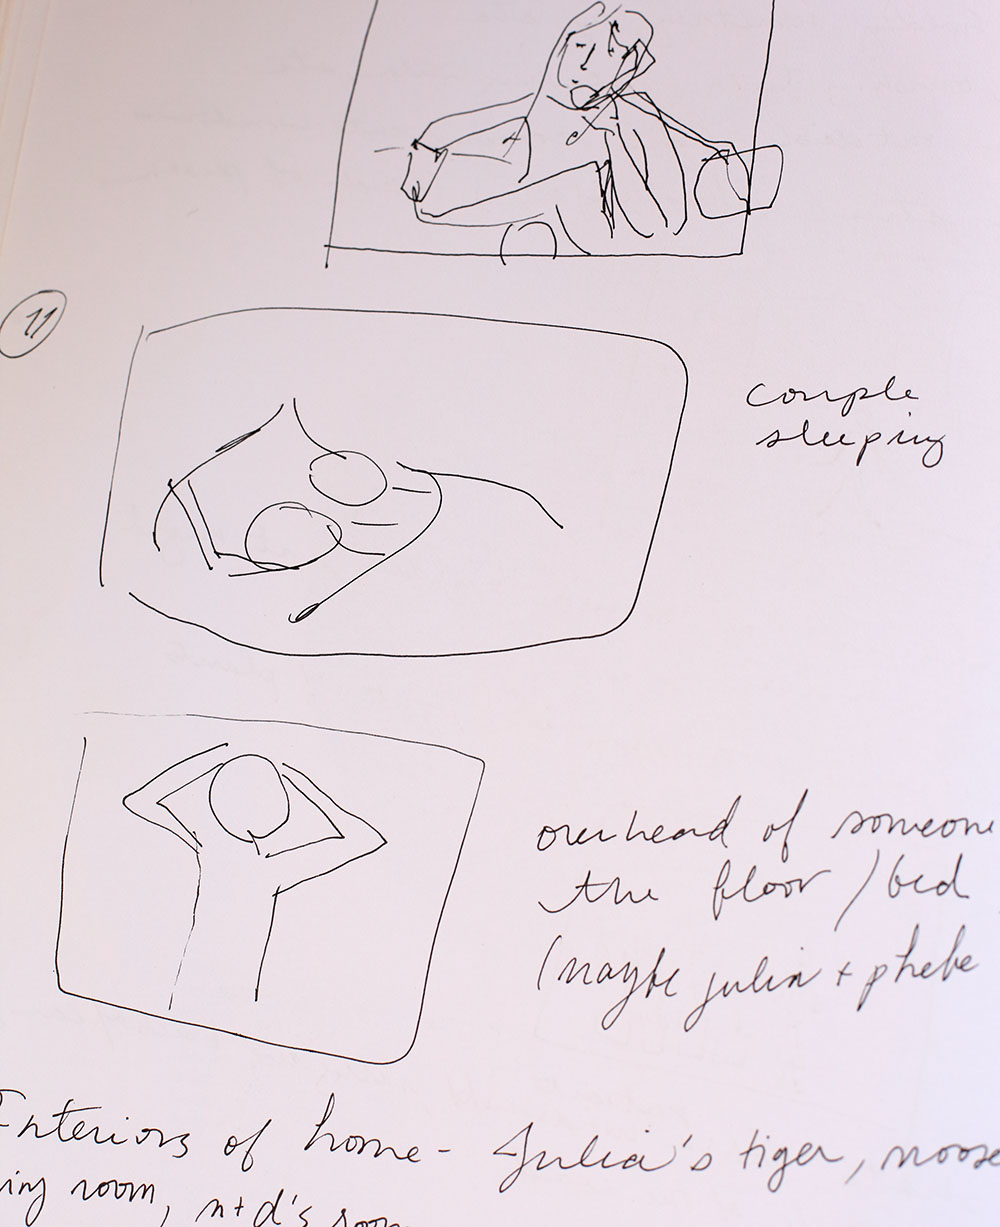 11
couple
sleeping
overhead of someone
the floor / bed
(maybe julia + phebe
Interiors of home - Julia's tiger, noose
ing room, n+d's room